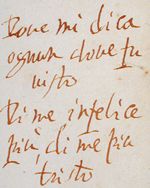 Dove mi dica
ognun dove tu
visto
Di me infelice
più, di me più
tristo